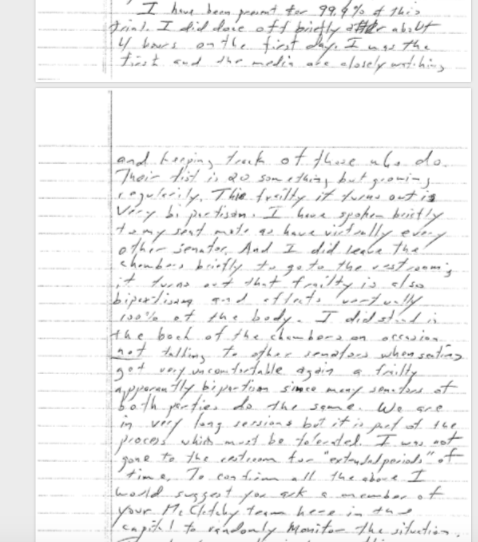 I have been present for 99.9% of this
trial. I did doze off briefly after about
4 hours on the first day. I was the
first and the media are closely watching
and keeping track of those who do.
Their list is 20 something but growing
regularily. This frailty it turns out is
very bipartisan. I have spoken briefly
to my seat mate as have virtually every
other senator. And I did leave the
chambers briefly to goto the restroom;
it turns out that frailty is also
bipartisan and effects virtually
100% of the body. I did stand in
the back of the chambers on occasion
not talking to other senators when seating
got very uncomfortable again a frailty
apparently bipartisan since many senators of
both parties do the same. We are
in very long sessions but it is part of the
process which must be tolerated. I was not
gone to the restroom for "extended periods" of
time. To confirm all the above I
would suggest you ask a member of
your McClatchy team here in the
capitol to randomly monitor the situation.